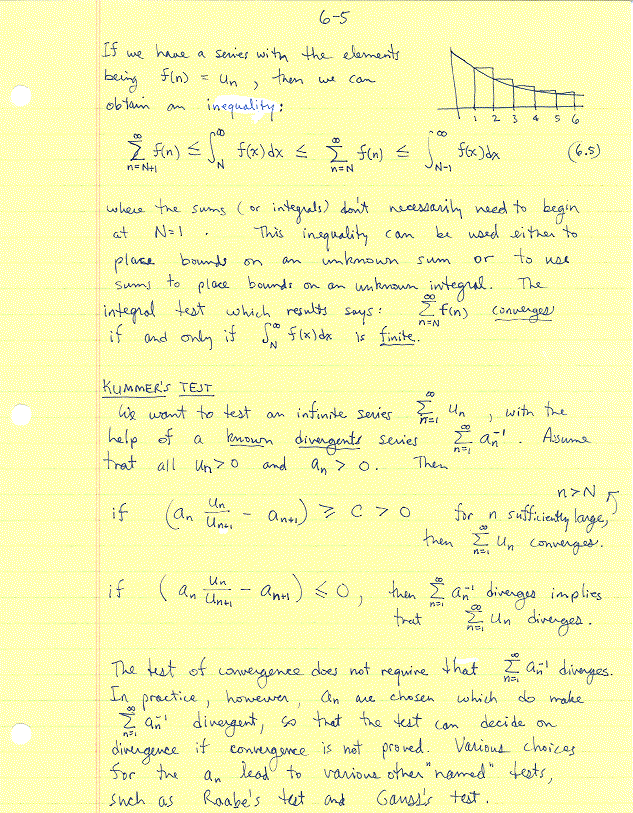 6-5
If we have a series with the elements
being f(n) = u_n, then we can
obtain an inequality:
1 2 3 4 5 6
∑_{n=N+1}^{∞} f(n) ≤ ∫_N^∞ f(x)dx ≤ ∑_{n=N}^{∞} f(n) ≤ ∫_{N-1}^∞ f(x)dx (6.5)
where the sums (or integrals) don't necessarily need to begin
at N=1. This inequality can be used either to
place bounds on an unknown sum or to use
sums to place bounds on an unknown integral. The
integral test which results says: ∑_{n=N}^{∞} f(n) converges
if and only if ∫_N^∞ f(x)dx is finite.
KUMMER'S TEST
We want to test an infinite series ∑_{n=1}^{∞} u_n, with the
help of a known divergents series ∑_{n=1}^{∞} a_n^{-1}. Assume
that all u_n>0 and a_n > 0. Then
n>N
if (a_n u_n/u_{n+1} - a_{n+1}) ≥ C > 0 for n sufficiently large,
then ∑_{n=1}^{∞} u_n converges.
if (a_n u_n/u_{n+1} - a_{n+1}) ≤ 0, then ∑_{n=1}^{∞} a_n^{-1} diverges implies
that ∑_{n=1}^{∞} u_n diverges.
The test of convergence does not require that ∑_{n=1}^{∞} a_n^{-1} diverges.
In practice, however, a_n are chosen which do make
∑_{n=1}^{∞} a_n^{-1} divergent, so that the test can decide on
divergence if convergence is not proved. Various choices
for the a_n lead to various other "named" tests,
such as Raabe's test and Gauss's test.